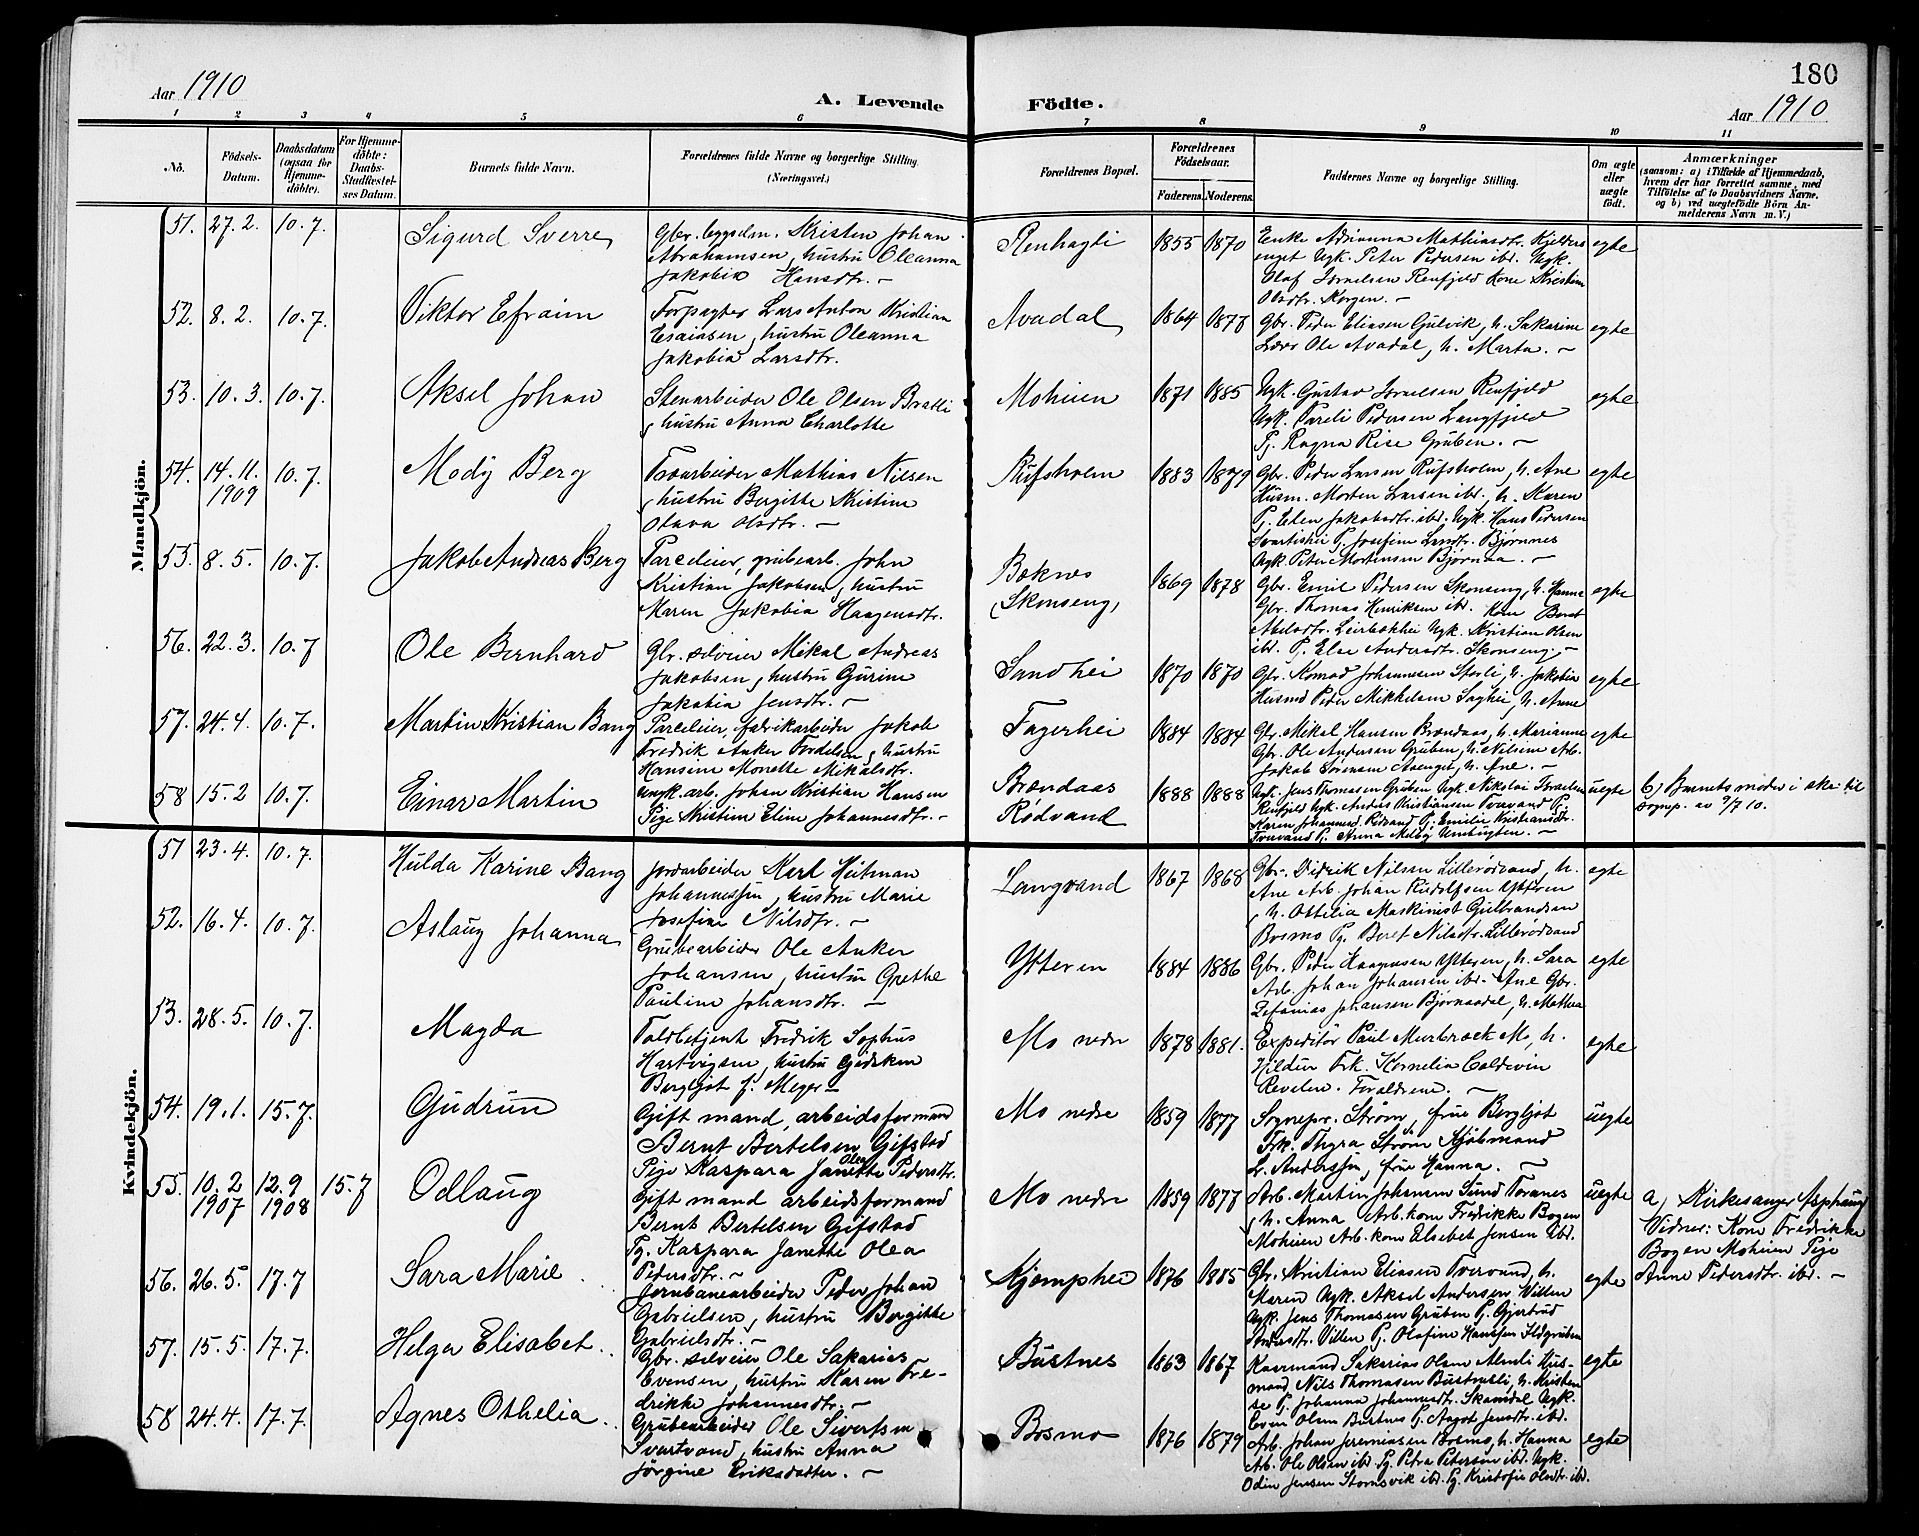 180
Aar 1910
A. Levende Födte.
Aar 1910
1 2 3 4 5 6 7 8 9 10 11
No.
Födsels-Datum.
Daabsdatum (ogsaa for Hjemme-döbte).
For Hjemme-döbte: Daabs-Stadfæstelses Datum.
Barnets fulde Navn.
Forældrenes fulde Navne og borgerlige Stilling. (Næringsvei.)
Forældrenes Bopæl.
Forældrenes Födselsaar.
Faderens. Moderens.
Faddernes Navne og borgerlige Stilling.
Om ægte eller uægte födt.
Anmærkninger
(saasom: a) i Tilfælde af Hjemmedaab, hvem der har forrettet samme, med Tilföielse af to Daabsvidners Navne, og b) ved uægtefödte Börn Anmelderens Navn m. V.)
Mandkjön.
51. 27.2. 10.7. Sigurd Sverre
Gbr. bygselm. Kristen Johan
Abrahamsen, hustru Oleanna
Jakobia Hansdtr. —
Renhagli 1855 1870
Enke Adrianna Mathiasdtr. Kjelders
enget Ugk. Peter Pedersen ibd. Ugk.
Olaf Isralsen Renfjeld Kone Kristina
Olsdtr. Korgen. —
egte
52. 8.2. 10.7. Viktor Efraim
Forpagter Lars Anton Kristian
Esaiasen, hustru Oleanna
Jakobia Larsdtr.
Avadal 1864 1877
Gbr. Peder Eliasen Gulvik, h. Sakarine
Lærer Ole Avadal, h. Marta. —
egte
53. 10.3. 10.7. Aksel Johan
Stenarbeider Ole Olsen Bratli
, hustru Anna Charlotte
Mohuen 1871 1885
Ugk. Gustav Isralsen Renfjeld
Ugk. Pareli Pedersen Langfjeld
Pj. Ragna Rise Gruben. —
egte
54. 14.11. 1909 10.7. Mody Berg
Tvarbeider Mathias Nilsen
, hustru Bergitte Kristine
Olava Olsdtr. —
Rufsholm 1883 1879
Gbr. Peder Larsen Rufsholm, h. Ane
Husm. Morten Larsen ibd., h. Maren
P. Elen Jakobsdtr. ibd. Ugk. Hans Pedersen
Svartishei P. Josefine Larsdtr. Bjørnnes
Ugk. Peter Mortensen Bjørnaa. —
egte
55. 8.5. 10.7. Jakob Andreas Berg
Parceleier, grubearb. John
Kristian Jakobsen, hustru
Maren Jakobia Haagensdtr.
Bæknes
(Skonseng) 1869 1878
Gbr. Emil Pedersen Skonseng, h. Hanna
Gbr. Thomas Henriksen ibd. Kone Beret
Abelsdtr. Leirbækhei Ugk. Kristian Olsen
ibd. P. Else Andersdtr. Skonseng. —
egte
56. 22.3. 10.7 Ole Bernhard
Gbr. selveier Mikal Andreas
Jakobsen, hustru Gurine
Jakobia Jensdtr. —
Sandhei 1870 1870
Gbr. Konrad Johannesen Storli h. Jakobia
Husmd Peder Mikkelsen Saghei, h. Anne
egte
57. 24.4. 10.7. Martin Kristian Bang
Parceleier, fabrikarbeider Jakob
Fredrik Anker Tordelsen, hustru
Hansine Monette Mikalsdtr.
Fagerhei 1884 1884
Gbr. Mikal Hansen Brændaas, h. Marianne
Gbr. Ole Andersen Gruben, h. Nilsine Arb.
Jakob Sørensen Aaenget, h. Ane. —
egte
58 15.2 10.7. Einar Martin
Ungk. arb. Johan Kristian Hansen
Pige Kristine Eline Johannesdtr. —
Brændaas
Rødvand 1888 1888
Ugk. Jens Thomassen Gruben Ugk. Nikolai Isralsen
Renfjeld Ugk. Anders Kristiansen Tvervand P.
Karen Johannesd. Rødvand P. Emilie Kristiansdtr.
Tvervand P. Anna Melby Umbugten. —
uegte
b) Barnets moder i skr. til
sognep. av 9/7 10.
Kvindekjön.
51 23.4. 10.7. Hulda Karine Bang
Jordarbeider Karl Heitman
Johannessen, hustru Marie
Josefine Nilsdtr. —
Langvand 1867 1868
Gbr. Didrik Nilsen Lillerødvand, h.
Ane Arb. Johan Rudolfsen Ytteren
, h. Ottilia Maskinist Gulbrandsen
Bosmo Pg. Beret Nilsdtr. Lillerødvand
egte
52. 16.4. 10.7. Aslaug Johanna
Grubearbeider Ole Anker
Johansen, hustru Grethe
Pauline Johansdtr. —
Ytteren 1884 1886
Gbr. Peder Haagensen Ytteren, h. Sara
Arb. Johan Johansen ibd. Ane Gbr.
Zefanias Johansen Bjørnaadal, h. Mathea
egte
53. 28.5. 10.7. Magda
Toldbetjent Fredrik Sophus
Hartvigsen, hustru Gidsken
Bergljot f. Meyer —
Mo nedre 1878 1881.
Expeditör Paul Murbræck Mo, h.
Hildur Frk. Kornelia Coldevin
Revelen. Foraldrene. —
egte
54. 19.1. 15.7. Gudrun
Gift mand, arbeidsformand
Bernt Bertelsen Gifstad
Pige Kaspara Janette Olea Pedersdtr.
Mo nedre 1859 1877
Sognepr. Strøm, frue Bergljot
Frk. Thyra Strøm Kjöbmand
L. Anderssen, frue Hanna. —
uegte
55. 10.2 1907 12.9 1908 15.7 Odlaug
Gift mand arbeidsformand
Bernt Bertelsen Gifstad
Pg. Kaspara Janette Olea
Pedersdtr. —
Mo nedre 1859 1877
Arb. Martin Johansen Sund Toranes
, h. Anna Arb. kone Fredrikke Bogen
Mohuen Arb. kone Elsebet Jensen ibd.
uegte
a) Kirkesanger Asphaug
Vidner: Kone Fredrikke
Bogen Mohuen Pige
Anne Pedersdtr. ibd. —
56. 26.5. 17.7 Sara Marie
Jernbanearbeider Peder Johan
Gabrielsen, hustru Bergitte
Gabrielsdtr. —
Kjemphei 1876 1885
Gbr. Kristian Eliasen Tvervand, h.
Maren Ugk. Aksel Andersen Villen
Ugk. Jens Thomassen Gruben P. Gjertrud
Andersdtr. Villen P. Olafine Hanssen Ildgruben
egte
57. 15.5. 17.7. Helga Elisabet
Gbr. selveier Ole Sakarias
Evensen, hustru Karen Fre-
drikke Johannesdtr. —
Bustnes 1863 1867
Kaarmand Sakarias Olsen Almli Hus-
mand Nils Thomassen Bustnesli, h. Kristen
se P. Johanna Johannesdtr. Skamdal Ugk.
Even Olsen Bustnes P. Aagot Jensdtr. ibd.
egte
58 24.4. 17.7. Agnes Othelia
Grubearbeider Ole Sivertsen
Svartvand, hustru Anna
Jörgine Eriksdatter. —
Bosmo 1876 1879
Arb. Johan Jeremiasen Bosmo, h. Hanna
Arb. Ole Olsen ibd. Pg. Petra Petersen ibd. Ugk.
Odin Jensen Stormsvik ibd. Pg. Kristofa Olsdtr. ibd.
egte